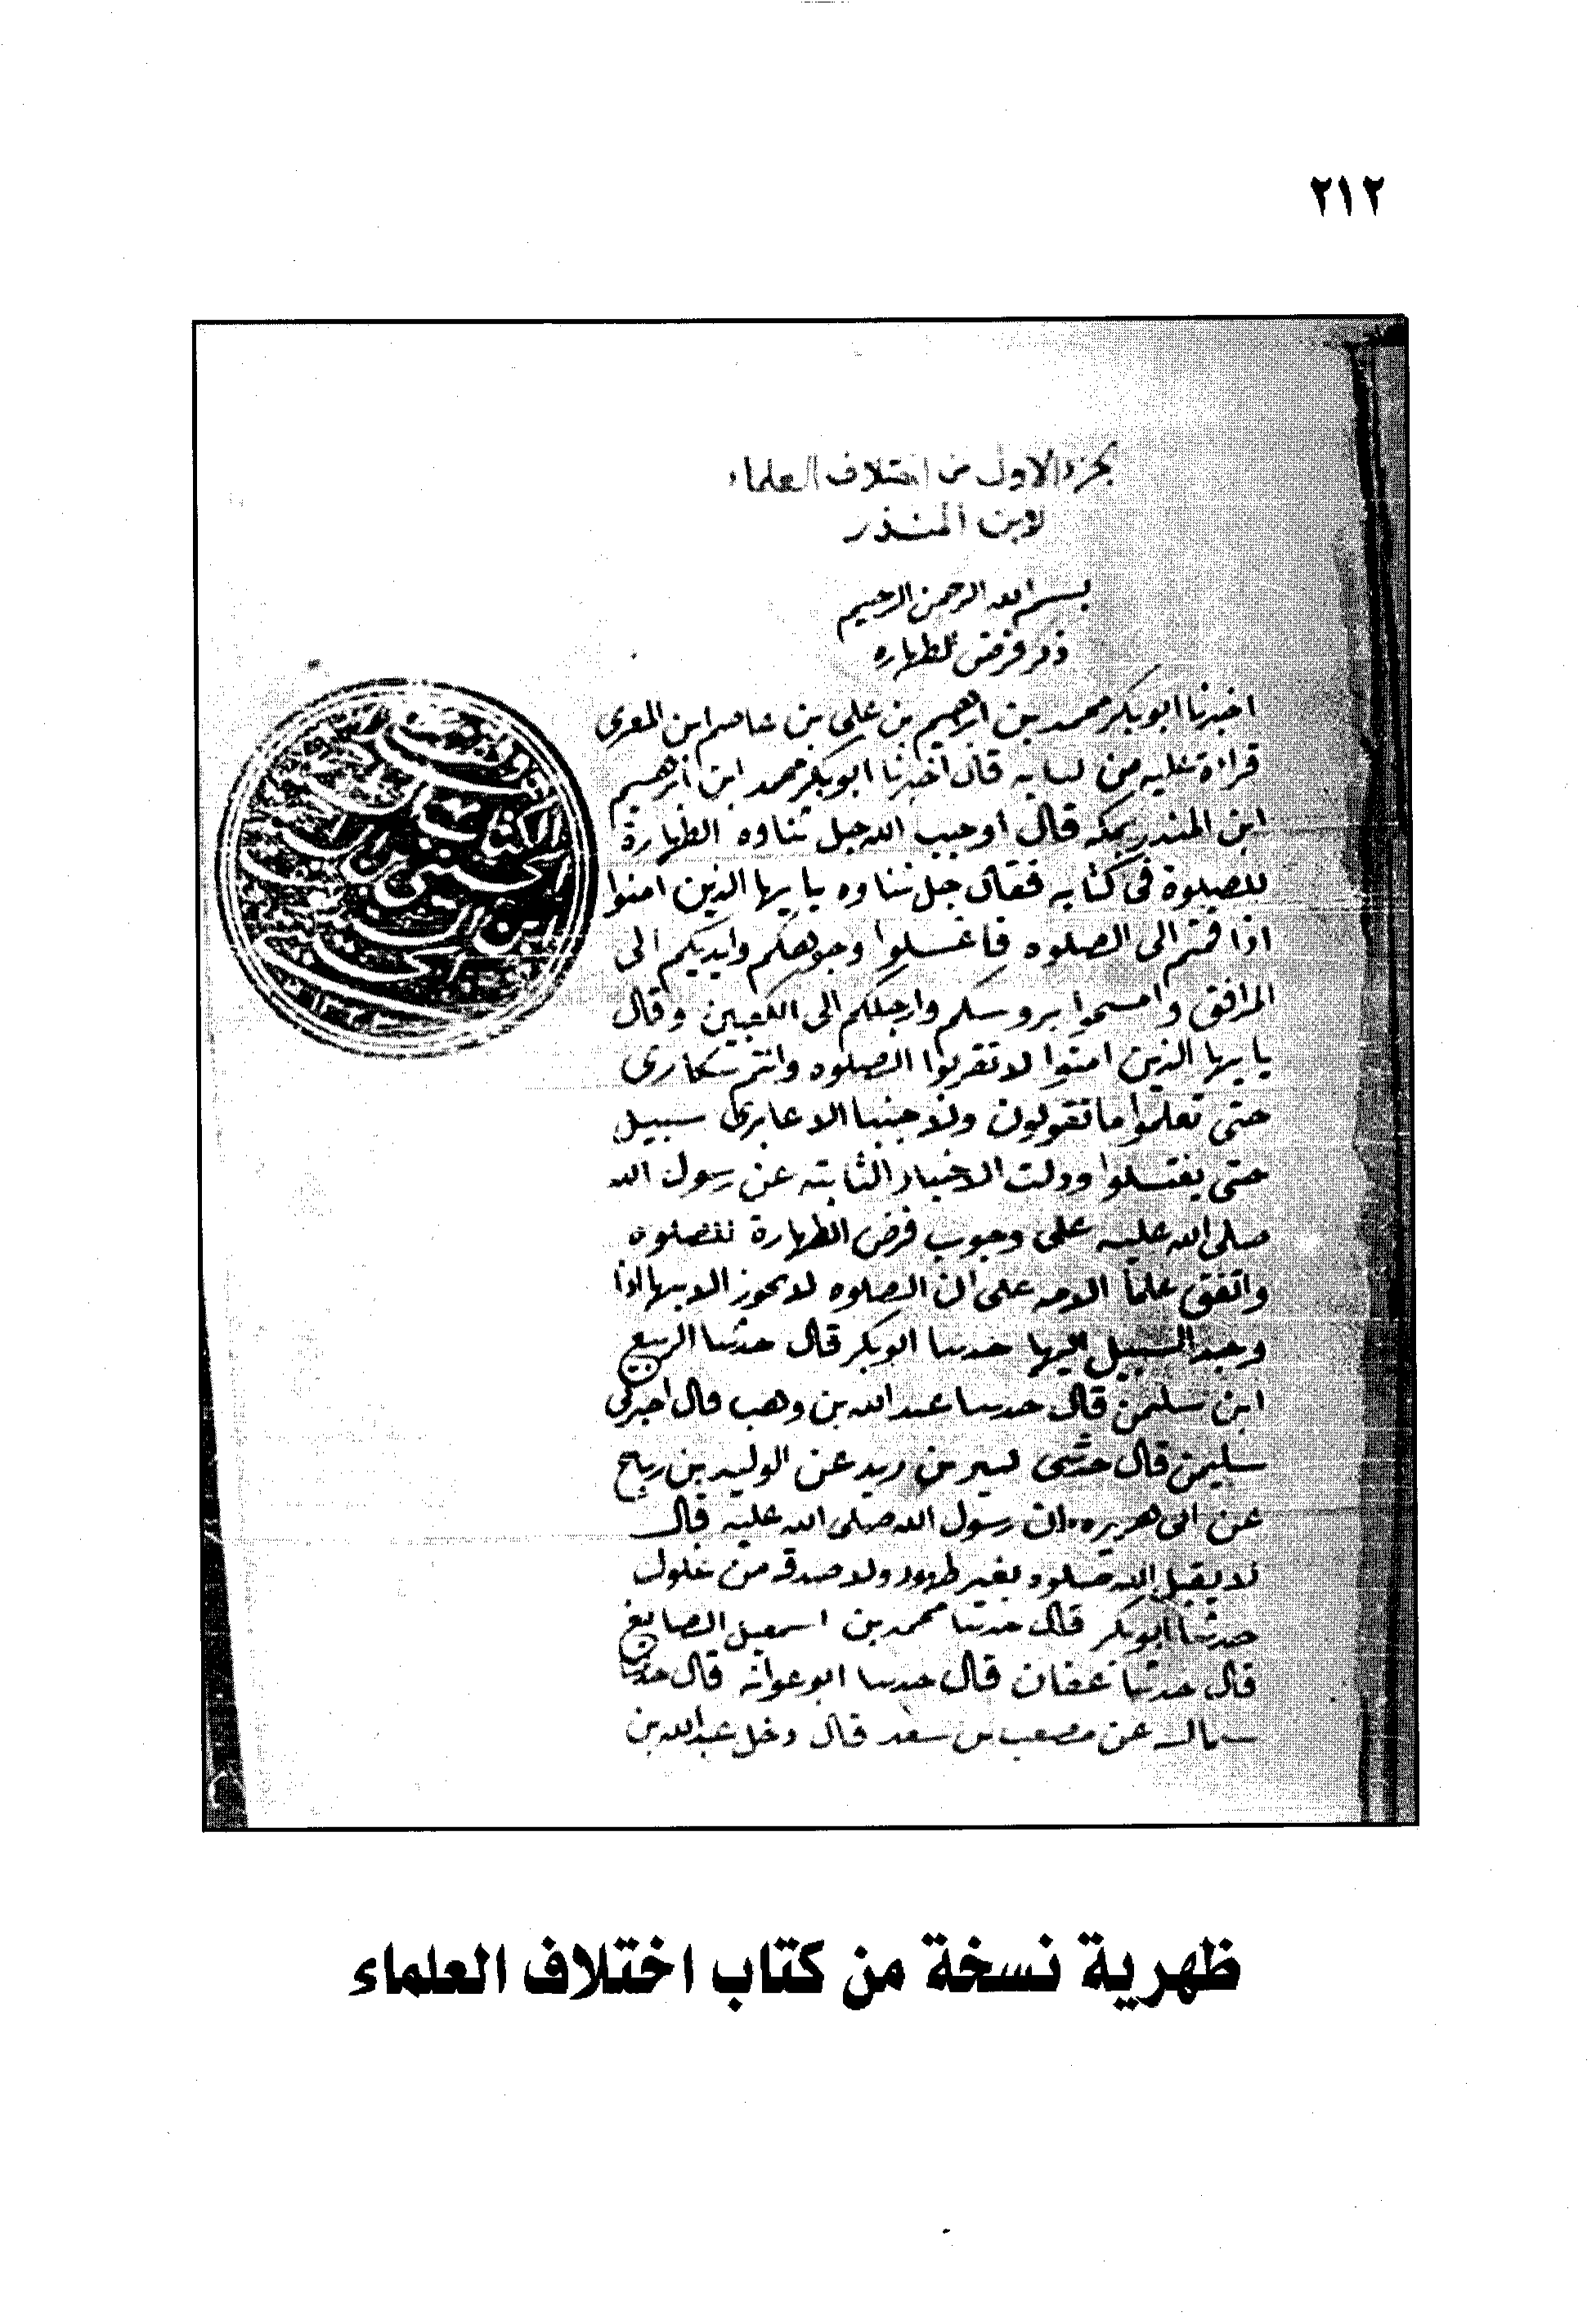 ٢١٢
الاول من اختلاف العلماء
لابن المنذر
بسم الله الرحمن الرحيم
ذكر فرض الطهاره
اخبرنا ابوبكر محمد بن ابرهيم بن علي بن عاصم ابن المقرى
قراءة عليه من كتابه قال اخبرنا ابوبكر محمد ابن ابرهيم
ابن المنذر بمكه قال اوجب الله جل ثناوه الطهارة
للصلوة فى كتابه فقال جل ثناوه يا يها الذين امنوا
اذا قمتم الى الصلوه فاغسلوا وجوهكم وايديكم الى
المرافق وامسحوا بروسكم وارجلكم الى الكعبين وقال
يا يها الذين امنوا لا تقربوا الصلوه وانتم سكارى
حتى تعلموا ما تقولون ولا جنبا الا عابرى سبيل
حتى تغتسلوا ودلت الاخبار الثابته عن رسول الله
صلى الله عليه على وجوب فرض الطهارة للصلوه
واتفق علما الامه على ان الصلوه لا تجوز الا بها اذا
وجد السبيل اليها حدثنا ابوبكر قال حدثنا الربيع
ابن سليمن قال حدثنا عبد الله بن وهب قال اخبرنى
سليمن قال حدثنى كثير بن زيد عن الوليد بن رباح
عن ابى هريره ان رسول الله صلى الله عليه قال
لا يقبل الله صلوه بغير طهور ولا صدقه من غلول
حدثنا ابوبكر قال حدثنا محمد بن اسمعيل الصايغ
قال حدثنا عفان قال حدثنا ابو عوانه قال حدثنا
سماك عن مصعب بن سعد قال دخل عبد الله بن
ظهرية نسخة من كتاب اختلاف العلماء